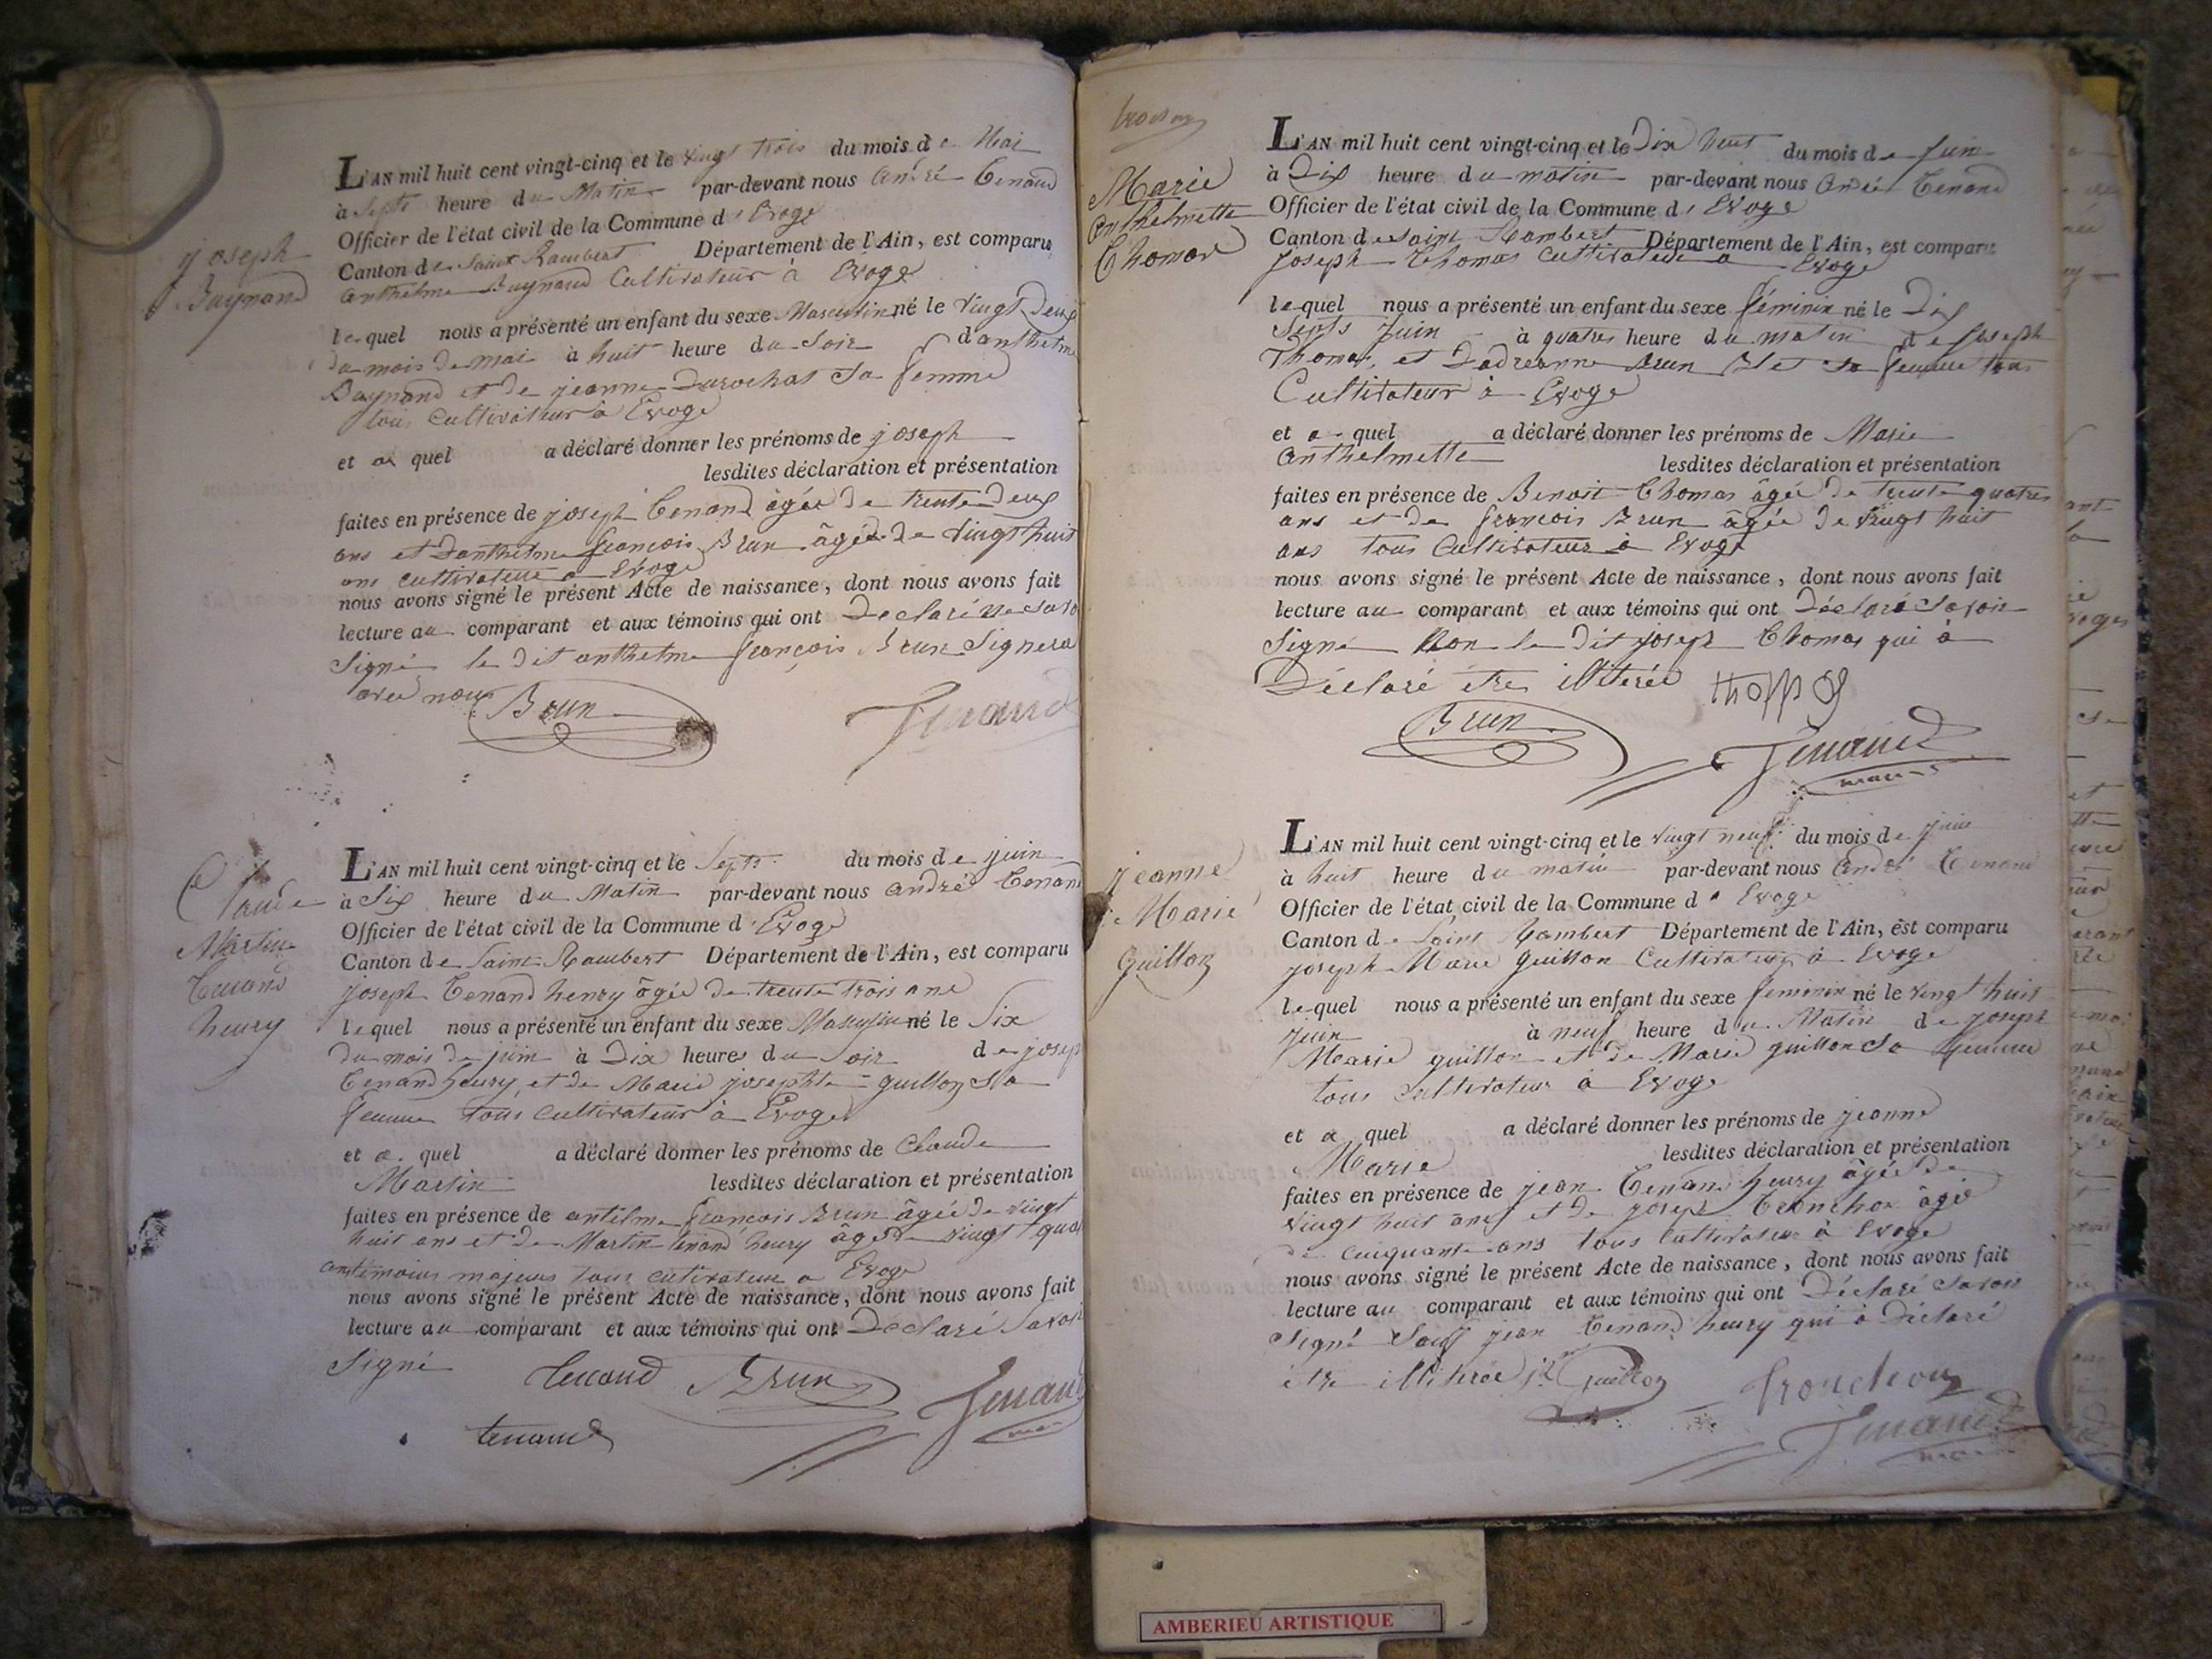 joseph
Baynand
L'AN mil huit cent vingt-cinq et le vingt trois du mois de Mai
à Septs heure du Matin par-devant nous André Tenand
Officier de l'état civil de la Commune d'Evoge
Canton de Saint Rambert Département de l'Ain, est comparu
anthelme Baynand Cultivateur à Evoge
lequel nous a présenté un enfant du sexe Masculin né le vingt Deux
du mois de mai à huit heure du Soir d'anthelme
Baynand et de jeanne Durochat Sa femme
tous Cultivateur à Evoge
et au quel a déclaré donner les prénoms de joseph
lesdites déclaration et présentation
faites en présence de joseph Tenand âgée de trente Deux
ans et Danthelme françois Brun âgée de vingt huit
ans cultivateur a Evoge
nous avons signé le présent Acte de naissance, dont nous avons fait
lecture au comparant et aux témoins qui ont Declaré ne Savo
Signé le dit anthelme françois Brun Signera
avec nous Brun Tenand
Claude
Martin
Tenand
henry
L'AN mil huit cent vingt-cinq et le Septs du mois de juin
à Six heure du Matin par-devant nous André Tenand
Officier de l'état civil de la Commune d'Evoge
Canton de Saint Rambert Département de l'Ain, est comparu
joseph Tenand henry âgée de trente trois ans
lequel nous a présenté un enfant du sexe Masculin né le Six
du mois de juin à Dix heures du Soir de josep
Tenand henry et de Marie josephte guillon Sa
femme tous cultivateur à Evoge
et au quel a déclaré donner les prénoms de Claude
Martin lesdites déclaration et présentation
faites en présence de antelme françois Brun âgée de vingt
huit ans et de Martin tenand henry âgé de vingt quat
ans temoins majeurs tous cutivateur a Evoge
nous avons signé le présent Acte de naissance, dont nous avons fait
lecture au comparant et aux témoins qui ont Declaré Savoir
Signé Tenand Brun Tenand
tenand
Marie
Anthelmette
Thomas
L'AN mil huit cent vingt-cinq et le Dix huit du mois de juin
à Dix heure du matin par-devant nous André Tenand
Officier de l'état civil de la Commune d'Evoge
Canton de Saint Rambert Département de l'Ain, est comparu
joseph Thomas Cultivateur a Evoge
lequel nous a présenté un enfant du sexe féminin né le Dix
Septs Juin à quatres heure du matin de Joseph
Thomas et Dadreanne Brun Blet sa femme tous
Cultivateur à Evoge
et au quel a déclaré donner les prénoms de Marie
Anthelmette lesdites déclaration et présentation
faites en présence de Benoit Thomas âgée de trente quatres
ans et de françois Brun âgée de vingt huit
ans tous Cultivateur à Evoge
nous avons signé le présent Acte de naissance, dont nous avons fait
lecture au comparant et aux témoins qui ont Déclaré Savoir
Signé Non le Dit joseph Thomas qui à
Déclaré être illiterée
Brun Tenand
maire
jeanne
Marie
Guillon
L'AN mil huit cent vingt-cinq et le vingt neuf du mois de juin
à huit heure du matin par-devant nous André Tenand
Officier de l'état civil de la Commune d'Evoge
Canton de Saint Rambert Département de l'Ain, est comparu
joseph Marie guillon Cultivateur à Evoge
lequel nous a présenté un enfant du sexe feminin né le vingt huit
juin à neuf heure du Matin de joseph
Marie guillon et de Marie guillon Sa femme
tous cultivateur à Evoge
et au quel a déclaré donner les prénoms de jeanne
Marie lesdites déclaration et présentation
faites en présence de jean Tenand henry âgée de
vingt huit ans et de joseph Tronchon âgé
de cinquante ans tous Cultivateur à Evoge
nous avons signé le présent Acte de naissance, dont nous avons fait
lecture au comparant et aux témoins qui ont Déclaré Savoir
Signé Sauf jean Tenand henry qui à Déclaré
être illiterée Guillon tronchon
Tenand
AMBERIEU ARTISTIQUE